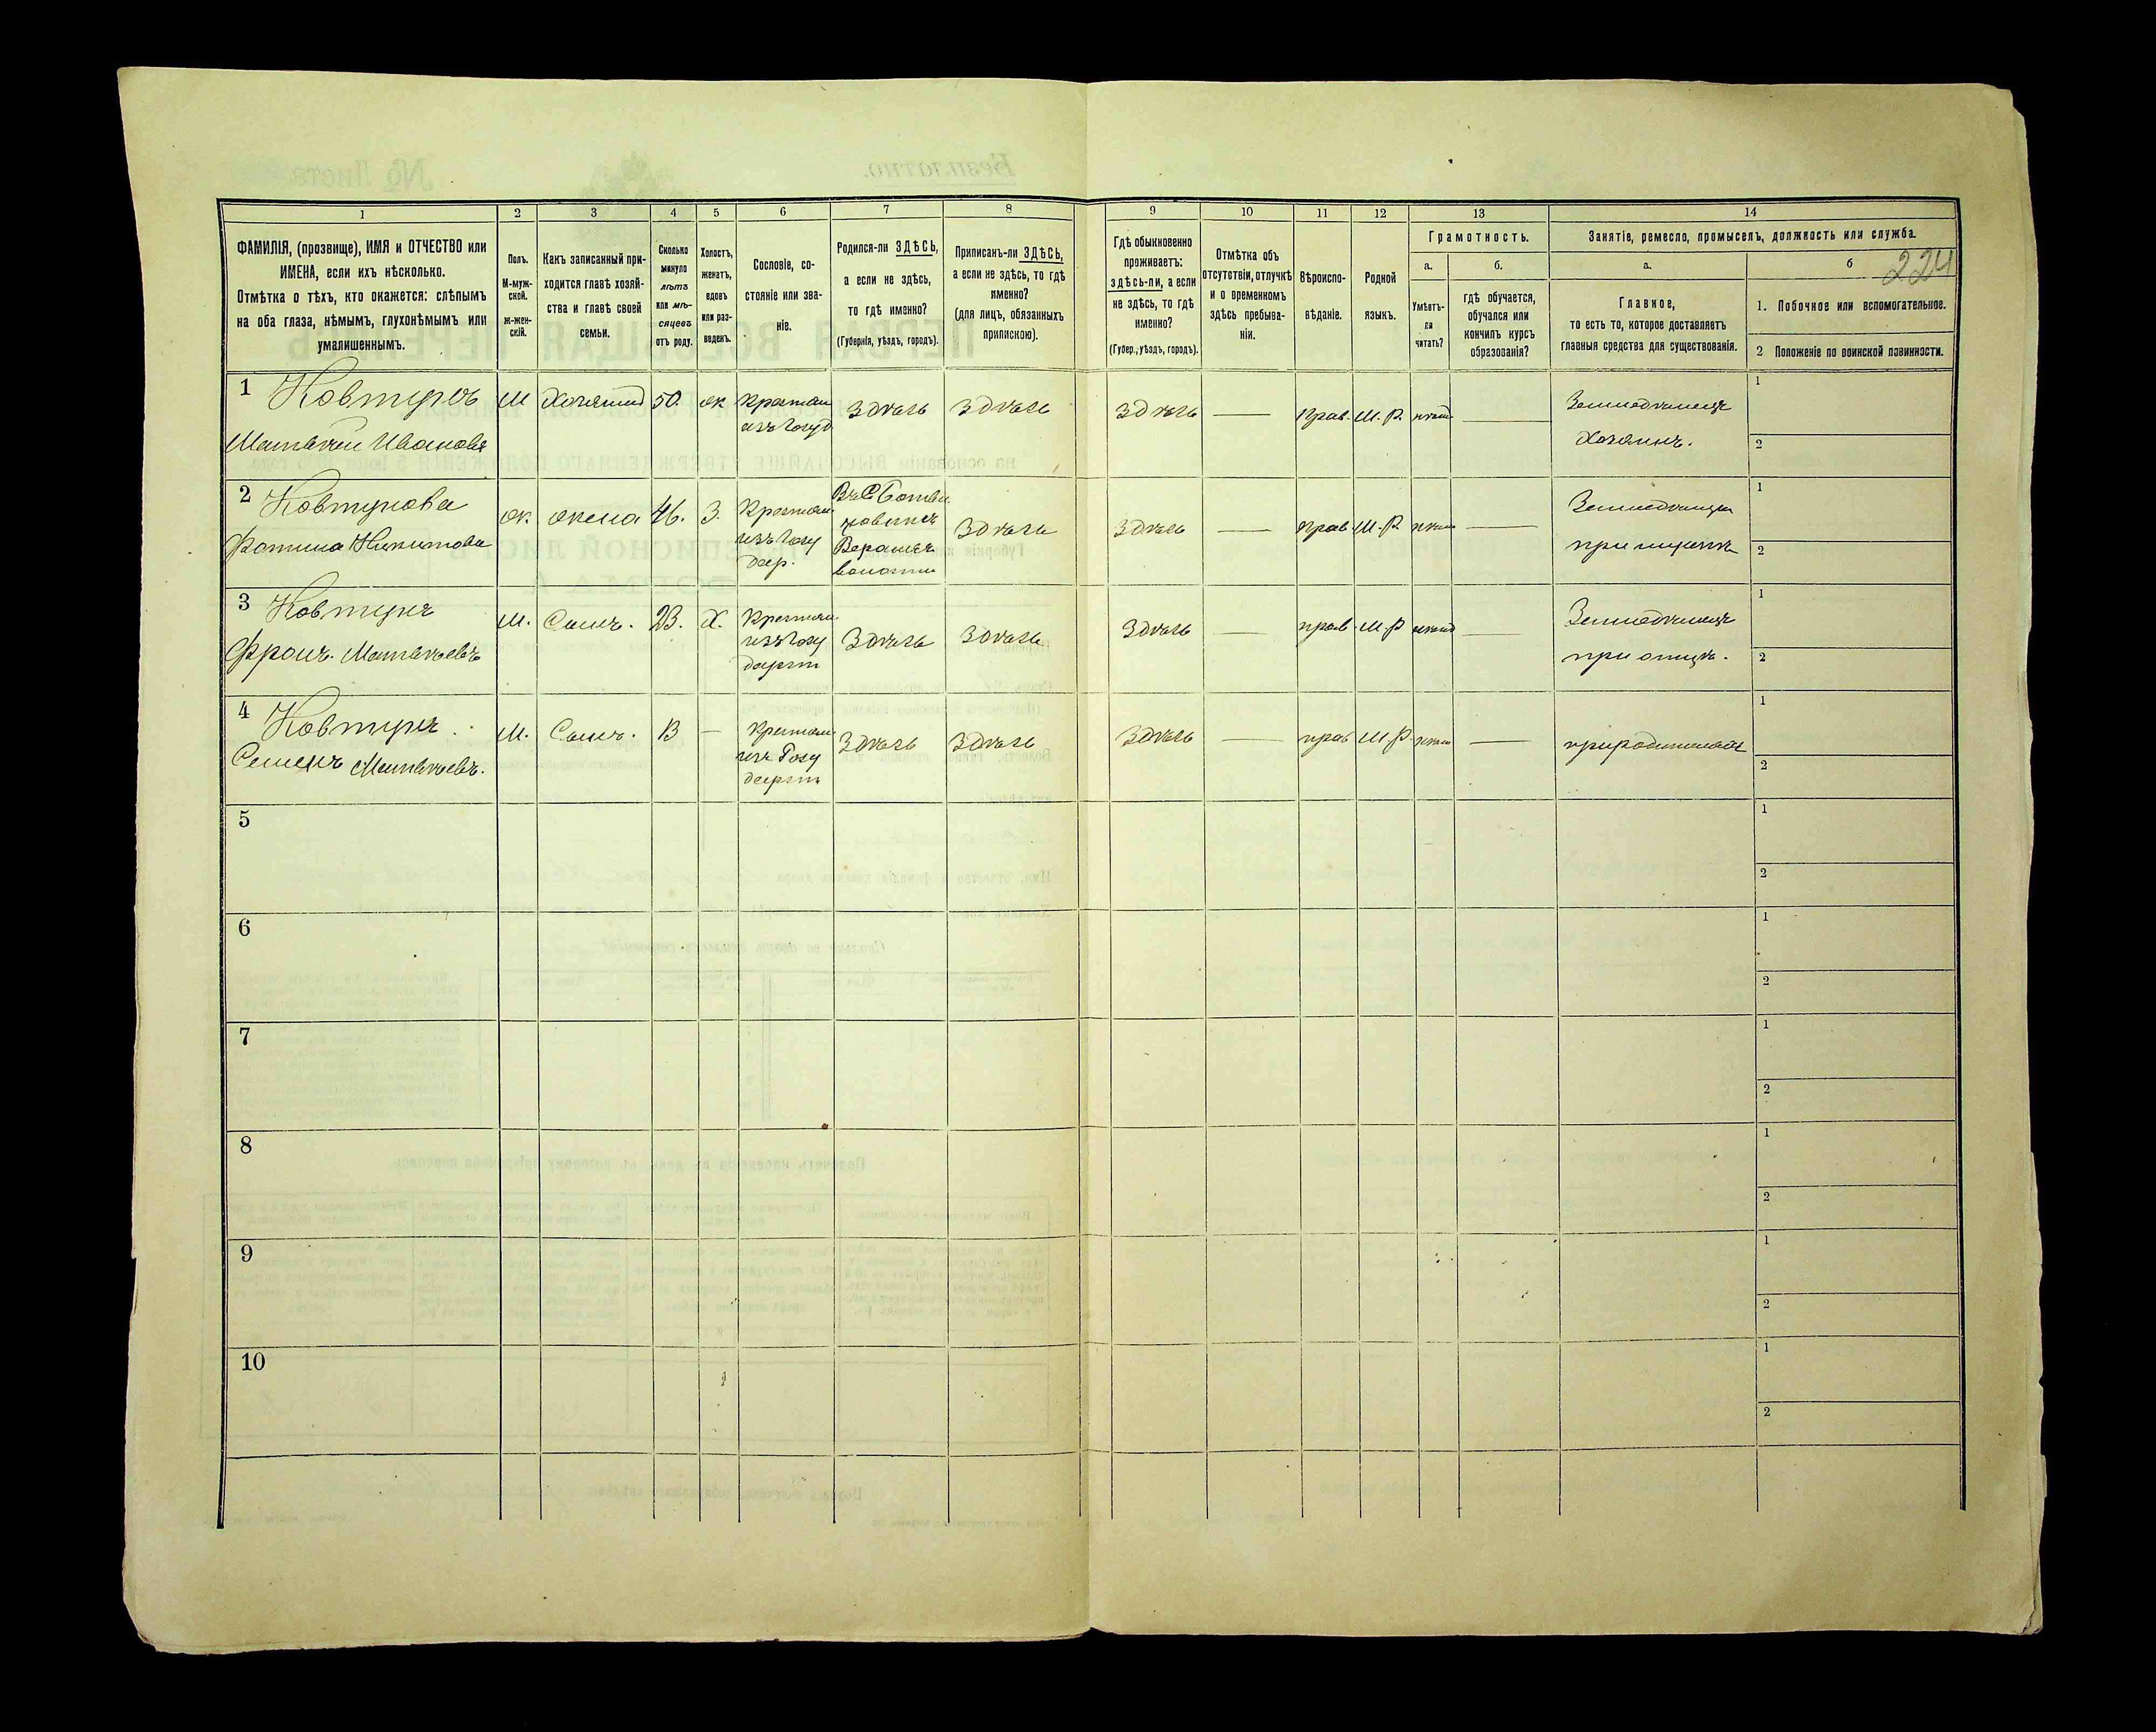 1
2
3
4
5
6
7
8
9
10
11
12
13
14
ФАМИЛІЯ, (прозвище), ИМЯ и ОТЧЕСТВО или
ИМЕНА, если ихъ нѣсколько.
Отмѣтка о тѣхъ, кто окажется: слѣпымъ
на оба глаза, нѣмымъ, глухонѣмымъ или
умалишеннымъ.
Полъ.
М-муж-
ской.
Ж-жен-
скій.
Какъ записанный при-
ходится главѣ хозяй-
ства и главѣ своей
семьи.
Сколько
минуло
лѣтъ
или мѣ-
сяцевъ
отъ роду.
Холостъ,
женатъ,
вдовъ
или раз-
веденъ.
Сословіе, со-
стояніе или зва-
ніе.
Родился-ли ЗДѢСЬ,
а если не здѣсь,
то гдѣ именно?
(Губернія, уѣздъ, городъ).
Приписанъ-ли ЗДѢСЬ,
а если не здѣсь, то гдѣ
именно?
(для лицъ, обязанныхъ
припискою).
Гдѣ обыкновенно
проживаетъ:
здѣсь-ли, а если
не здѣсь, то гдѣ
именно?
(Губер., уѣздъ, городъ).
Отмѣтка объ
отсутствіи, отлучкѣ
и о временномъ
здѣсь пребыва-
ніи.
Вѣроиспо-
вѣданіе.
Родной
языкъ.
Грамотность.
а.
Умѣетъ-
ли
читать?
б.
гдѣ обучается,
обучался или
кончилъ курсъ
образованія?
Занятіе, ремесло, промыселъ, должность или служба.
а.
Главное,
то есть то, которое доставляетъ
главныя средства для существованія.
б
224
1. Побочное или вспомогательное.
2 Положеніе по воинской повинности.
1 Ковтунъ
Матвѣй Ивановъ
М
Хозяинъ
50.
ж
Крестьян
изъ Госуд
Здѣсь
Здѣсь
Здѣсь
—
Прав.
М. Р.
—
Земледѣлецъ
Хозяинъ.
1
2
2 Ковтунова
Никитова
ж.
жена
46.
З.
Крестьян
изъ Госу
дар.
волости
Здѣсь
Здѣсь
—
прав
М. Р.
—
1
2
3 Ковтунъ
Матвѣевъ
М.
Сынъ.
23.
Х.
Крестьян
изъ Госу
дарст
Здѣсь
Здѣсь
Здѣсь
—
прав
М. Р
—
Земледѣлецъ
при отцѣ.
1
2
4 Ковтунъ
Семенъ Матвѣевъ.
М.
Сынъ.
13
—
Крестьян
изъ Госу
дарст
Здѣсь
Здѣсь
Здѣсь
—
прав
М. Р.
—
1
2
5
1
2
6
1
2
7
1
2
8
1
2
9
1
2
10
1
2